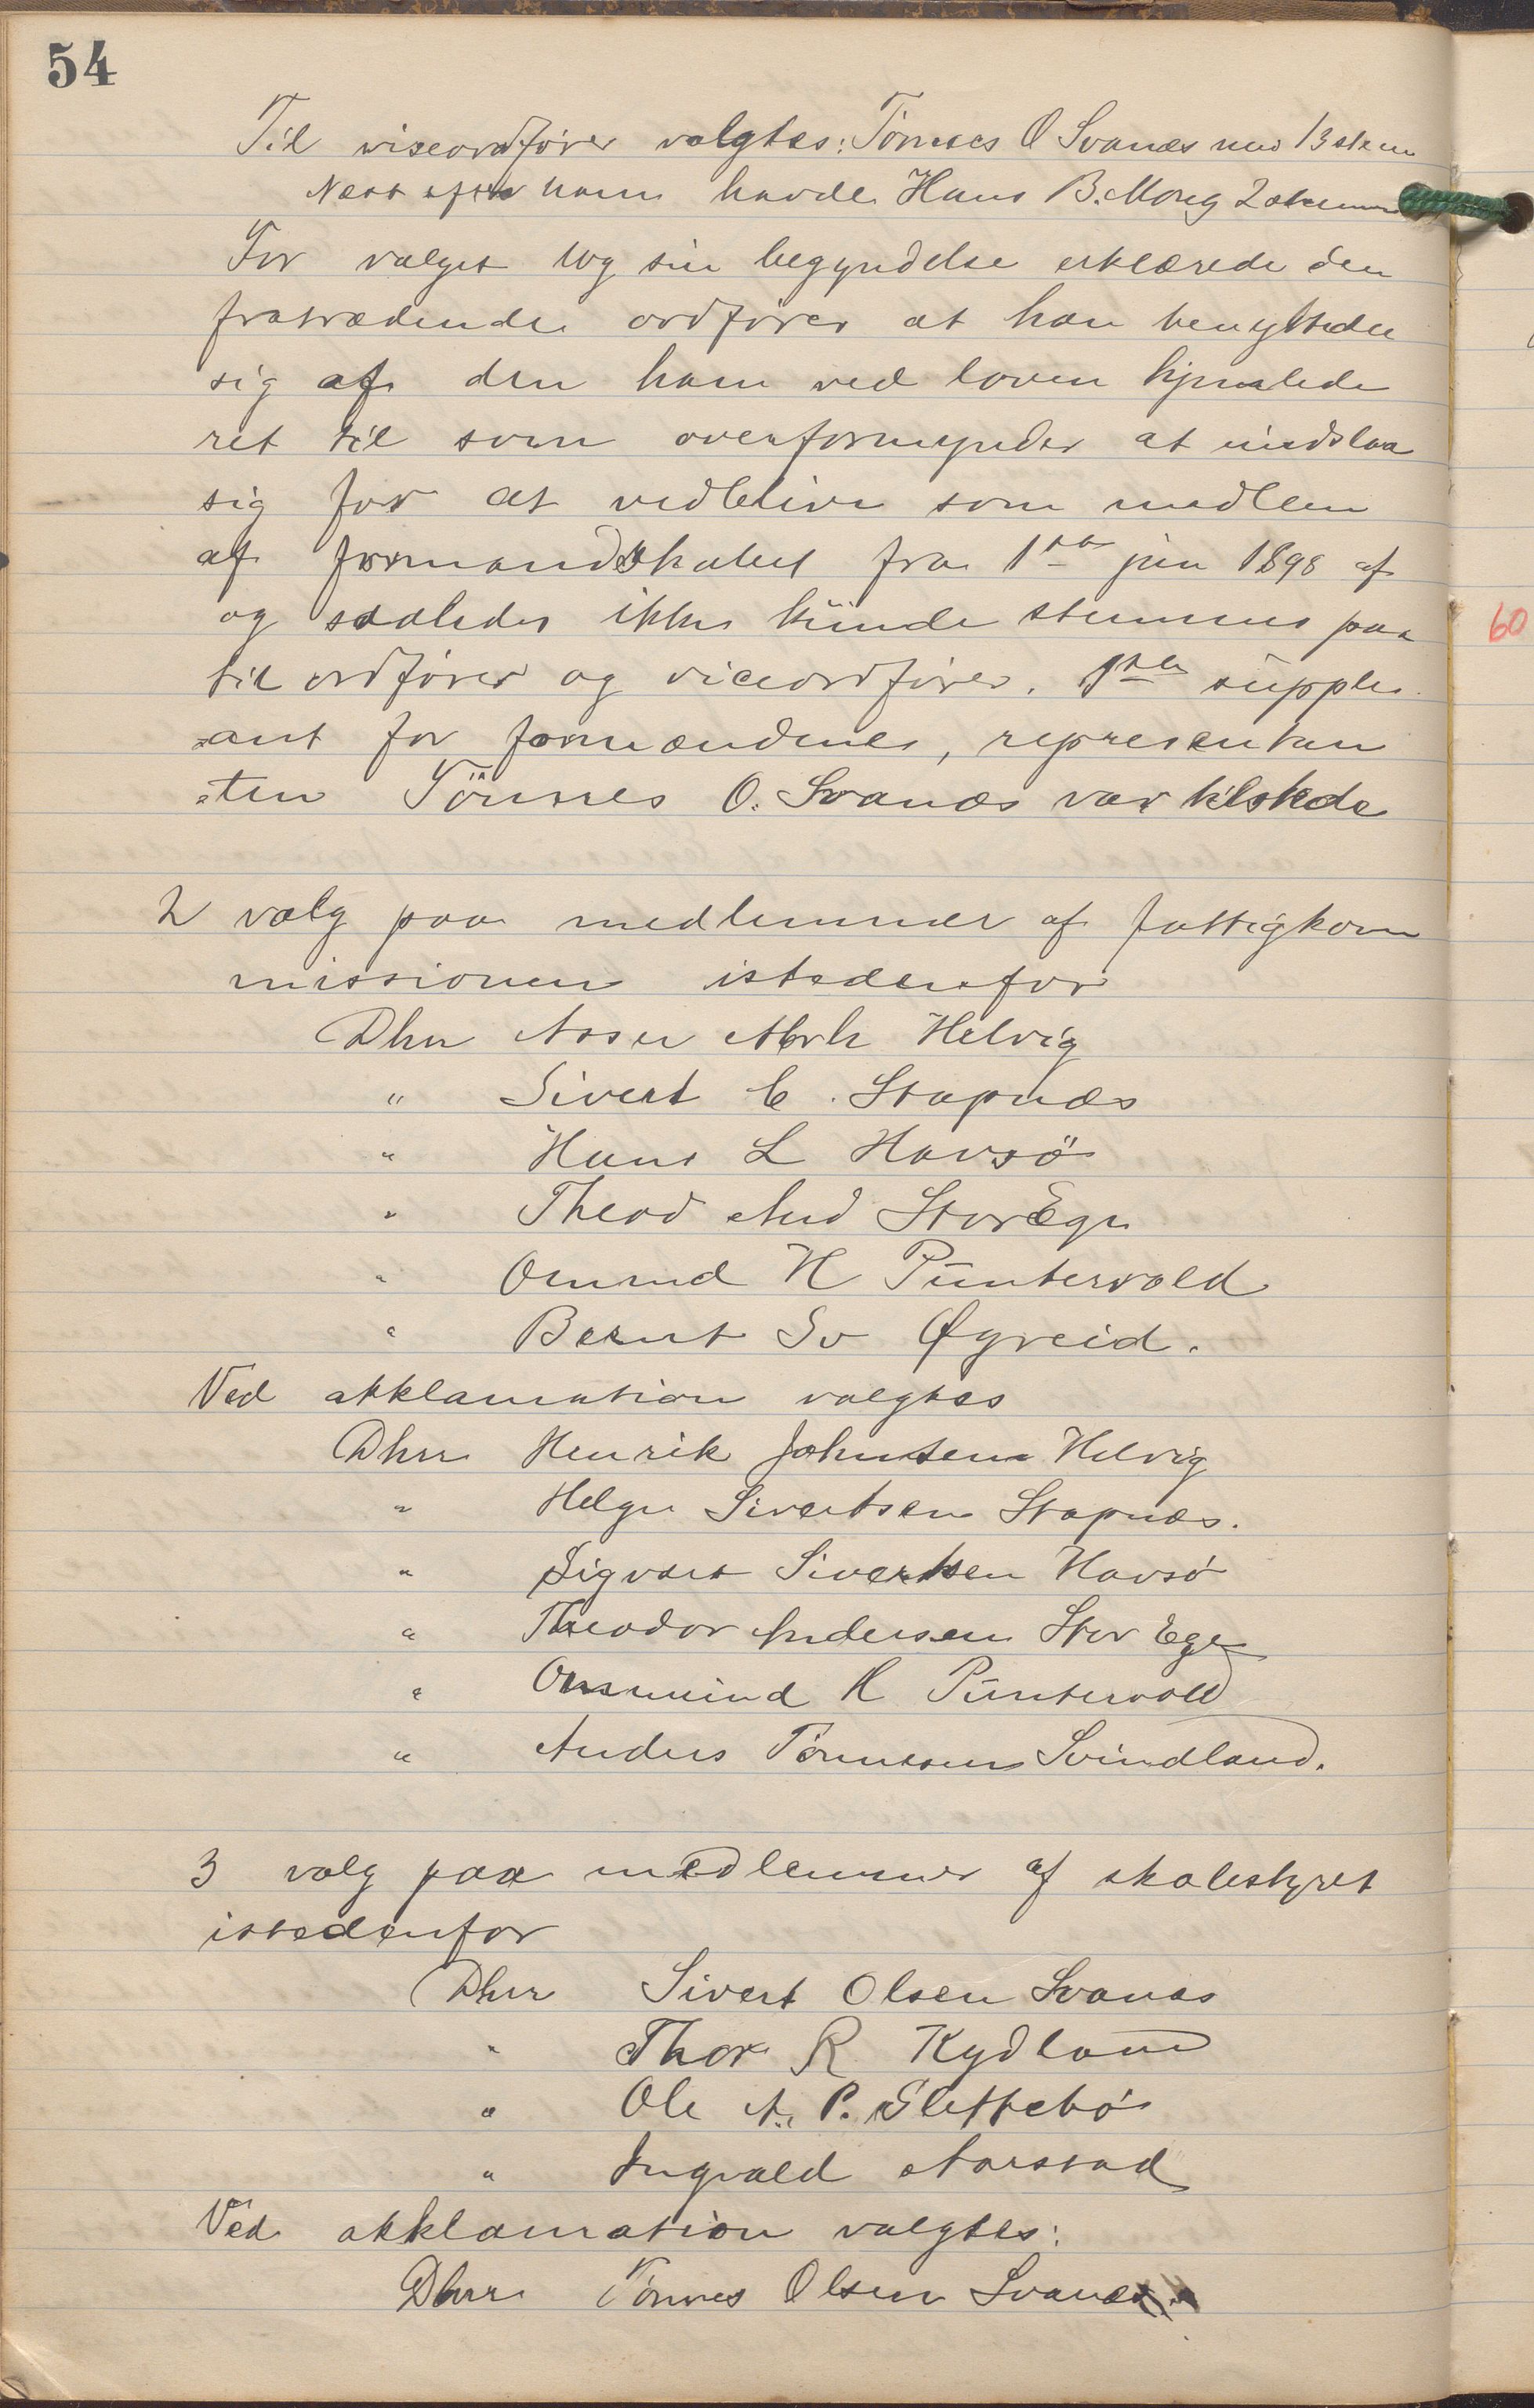 54
Til viseordfører valgtes: Tønnes O Svanæs med 13 stem
Næst efter ham havde Hans B. Mong 2 stemmer
Før valget tog sin begyndelse erklærede den
fratrædende ordfører at han benyttede
sig af den ham ved loven hjemlede
ret til som overformynder at undslaa
sig for at vedblive som medlem
af formandskabet fra 1ste jan 1898 af
og saaledes ikke kunde stemmes paa
til ordfører og viceordfører. 1ste supple
=ant for formændenes, representan
=ten Tönnes O. Svanæs var tilstede
2 valg paa medlemmer af fattigkom
missionen istedenfor
Dhrr Asser Abrh Helvig
" Sivert C. Stapnæs
" Hans L Havsö
" Theod And StorEge
" Ommund H Puntervold
" Bernt Sv Øgreid.
Ved akklamation valgtes
Dhrr Henrik Johnsen Helvig
" Helge Sivertsen Stapnæs.
" Sigvart Sivertsen Havsö
" Theodor Andersen Stor Ege
" Ommund H Puntervold
" Anders Tønnesen Svindland.
3 valg paa medlemmer af skolestyret
istedenfor
Dhrr Sivert Olsen Svanæs
" Thor R Kydland
" Ole A. P. Slettebö
" Ingvald Aarstad
Ved akklamation valgtes:
Dhrr Tønnes Olsen Svanæs
60